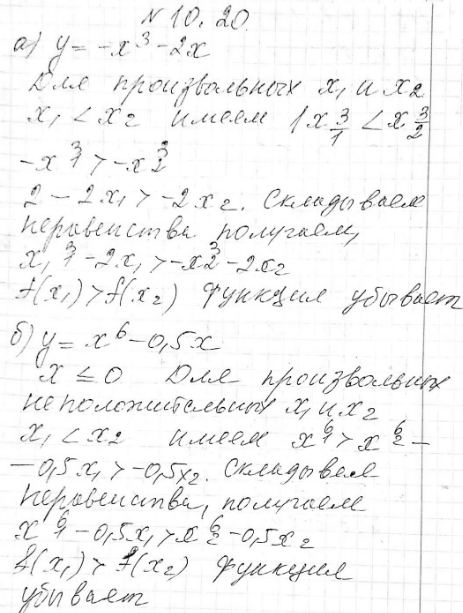 № 10. 20.
а) y = -x³ - 2x
Для произвольных x₁ и x₂
x₁ < x₂ имеем 1 x₁³ < x₂³
-x₁³ > -x₂³
2 - 2x₁ > -2x₂. Складываем
неравенства получаем,
x₁³ - 2x₁ > -x₂³ - 2x₂
f(x₁) > f(x₂) функция убывает
б) y = x⁶ - 0,5x
x ≤ 0 Для произвольных
неположительных x₁ и x₂
x₁ < x₂ имеем x₁⁶ > x₂⁶ -
- 0,5x₁ > -0,5x₂. Складывем
неравенства, получаем
x₁⁶ - 0,5x₁ > x₂⁶ - 0,5x₂
f(x₁) > f(x₂) функция
убывает